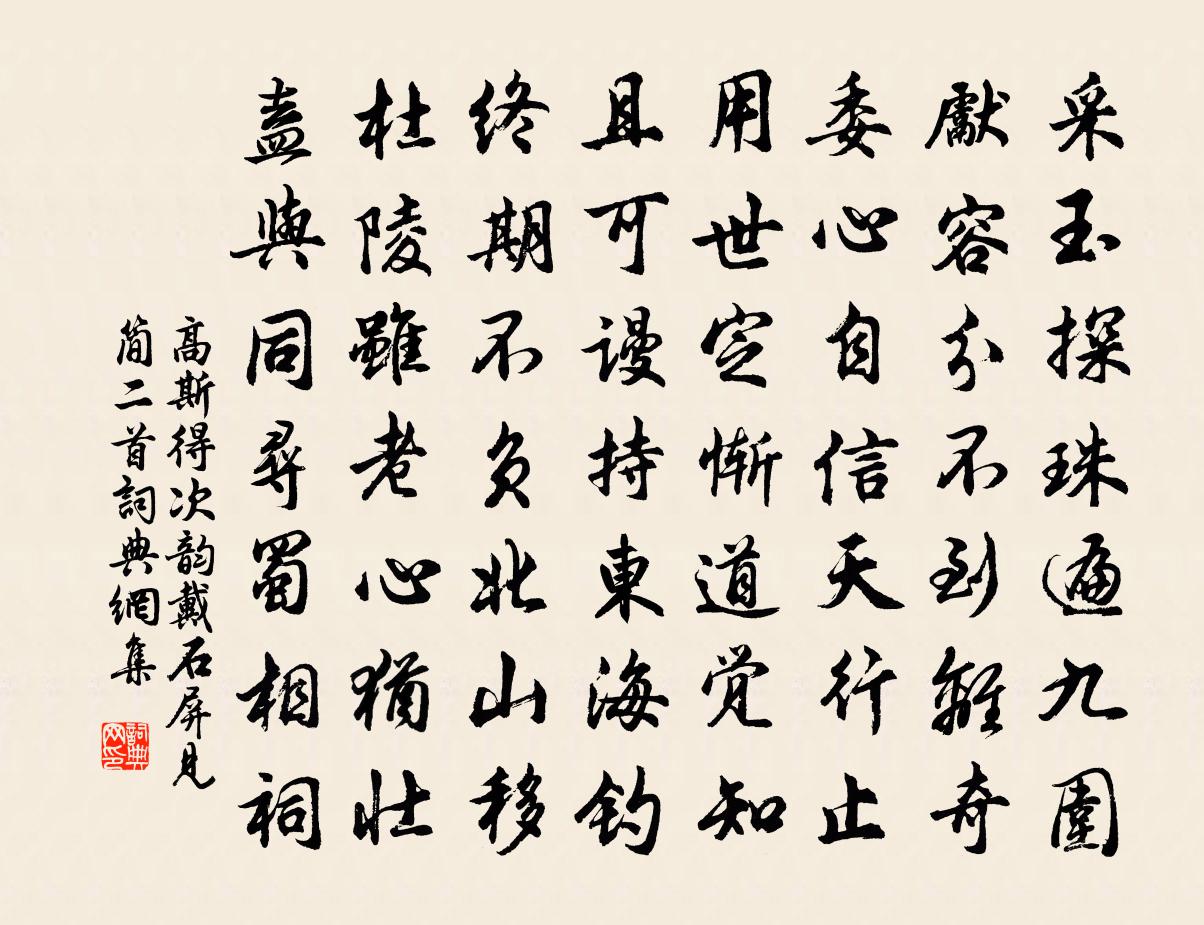 采玉探珠遍九圍
獻容分不到離奇
委心自信天行止
用世定慚道覚知
且可謾持東海钓
终期不负北山移
杜陵雖老心猶壮
盍與同尋蜀相祠
高斯得次韵戴石屏見
简二首詞典網集
詞典网印